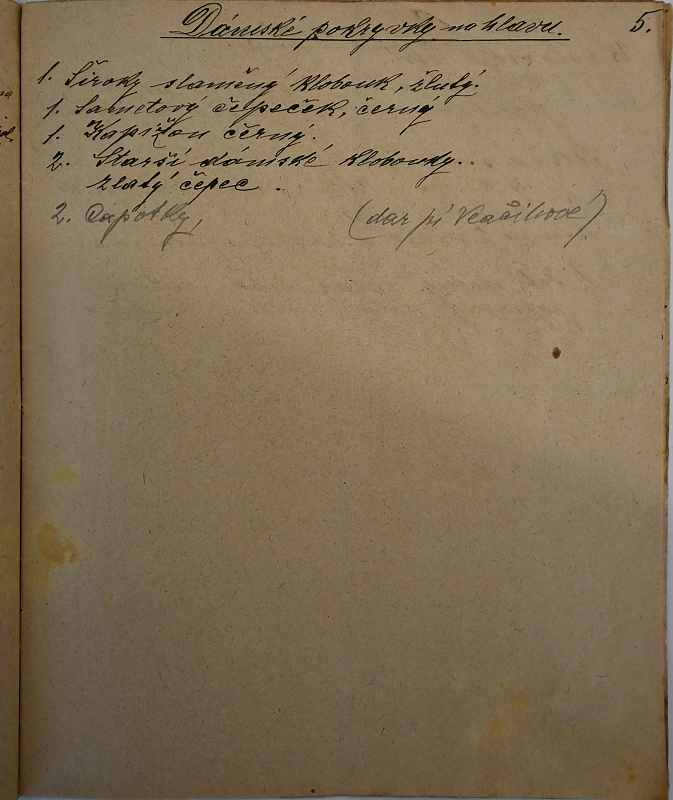 Dámské pokryvky na hlavu. 5.
1. Široky slaměný klobouk, žlutý.
1. Sametový čepeček, černý
1. Kapižon černý.
2. Starší dámské klobouky.
zlatý čepec.
2. Capotky, (dar pí